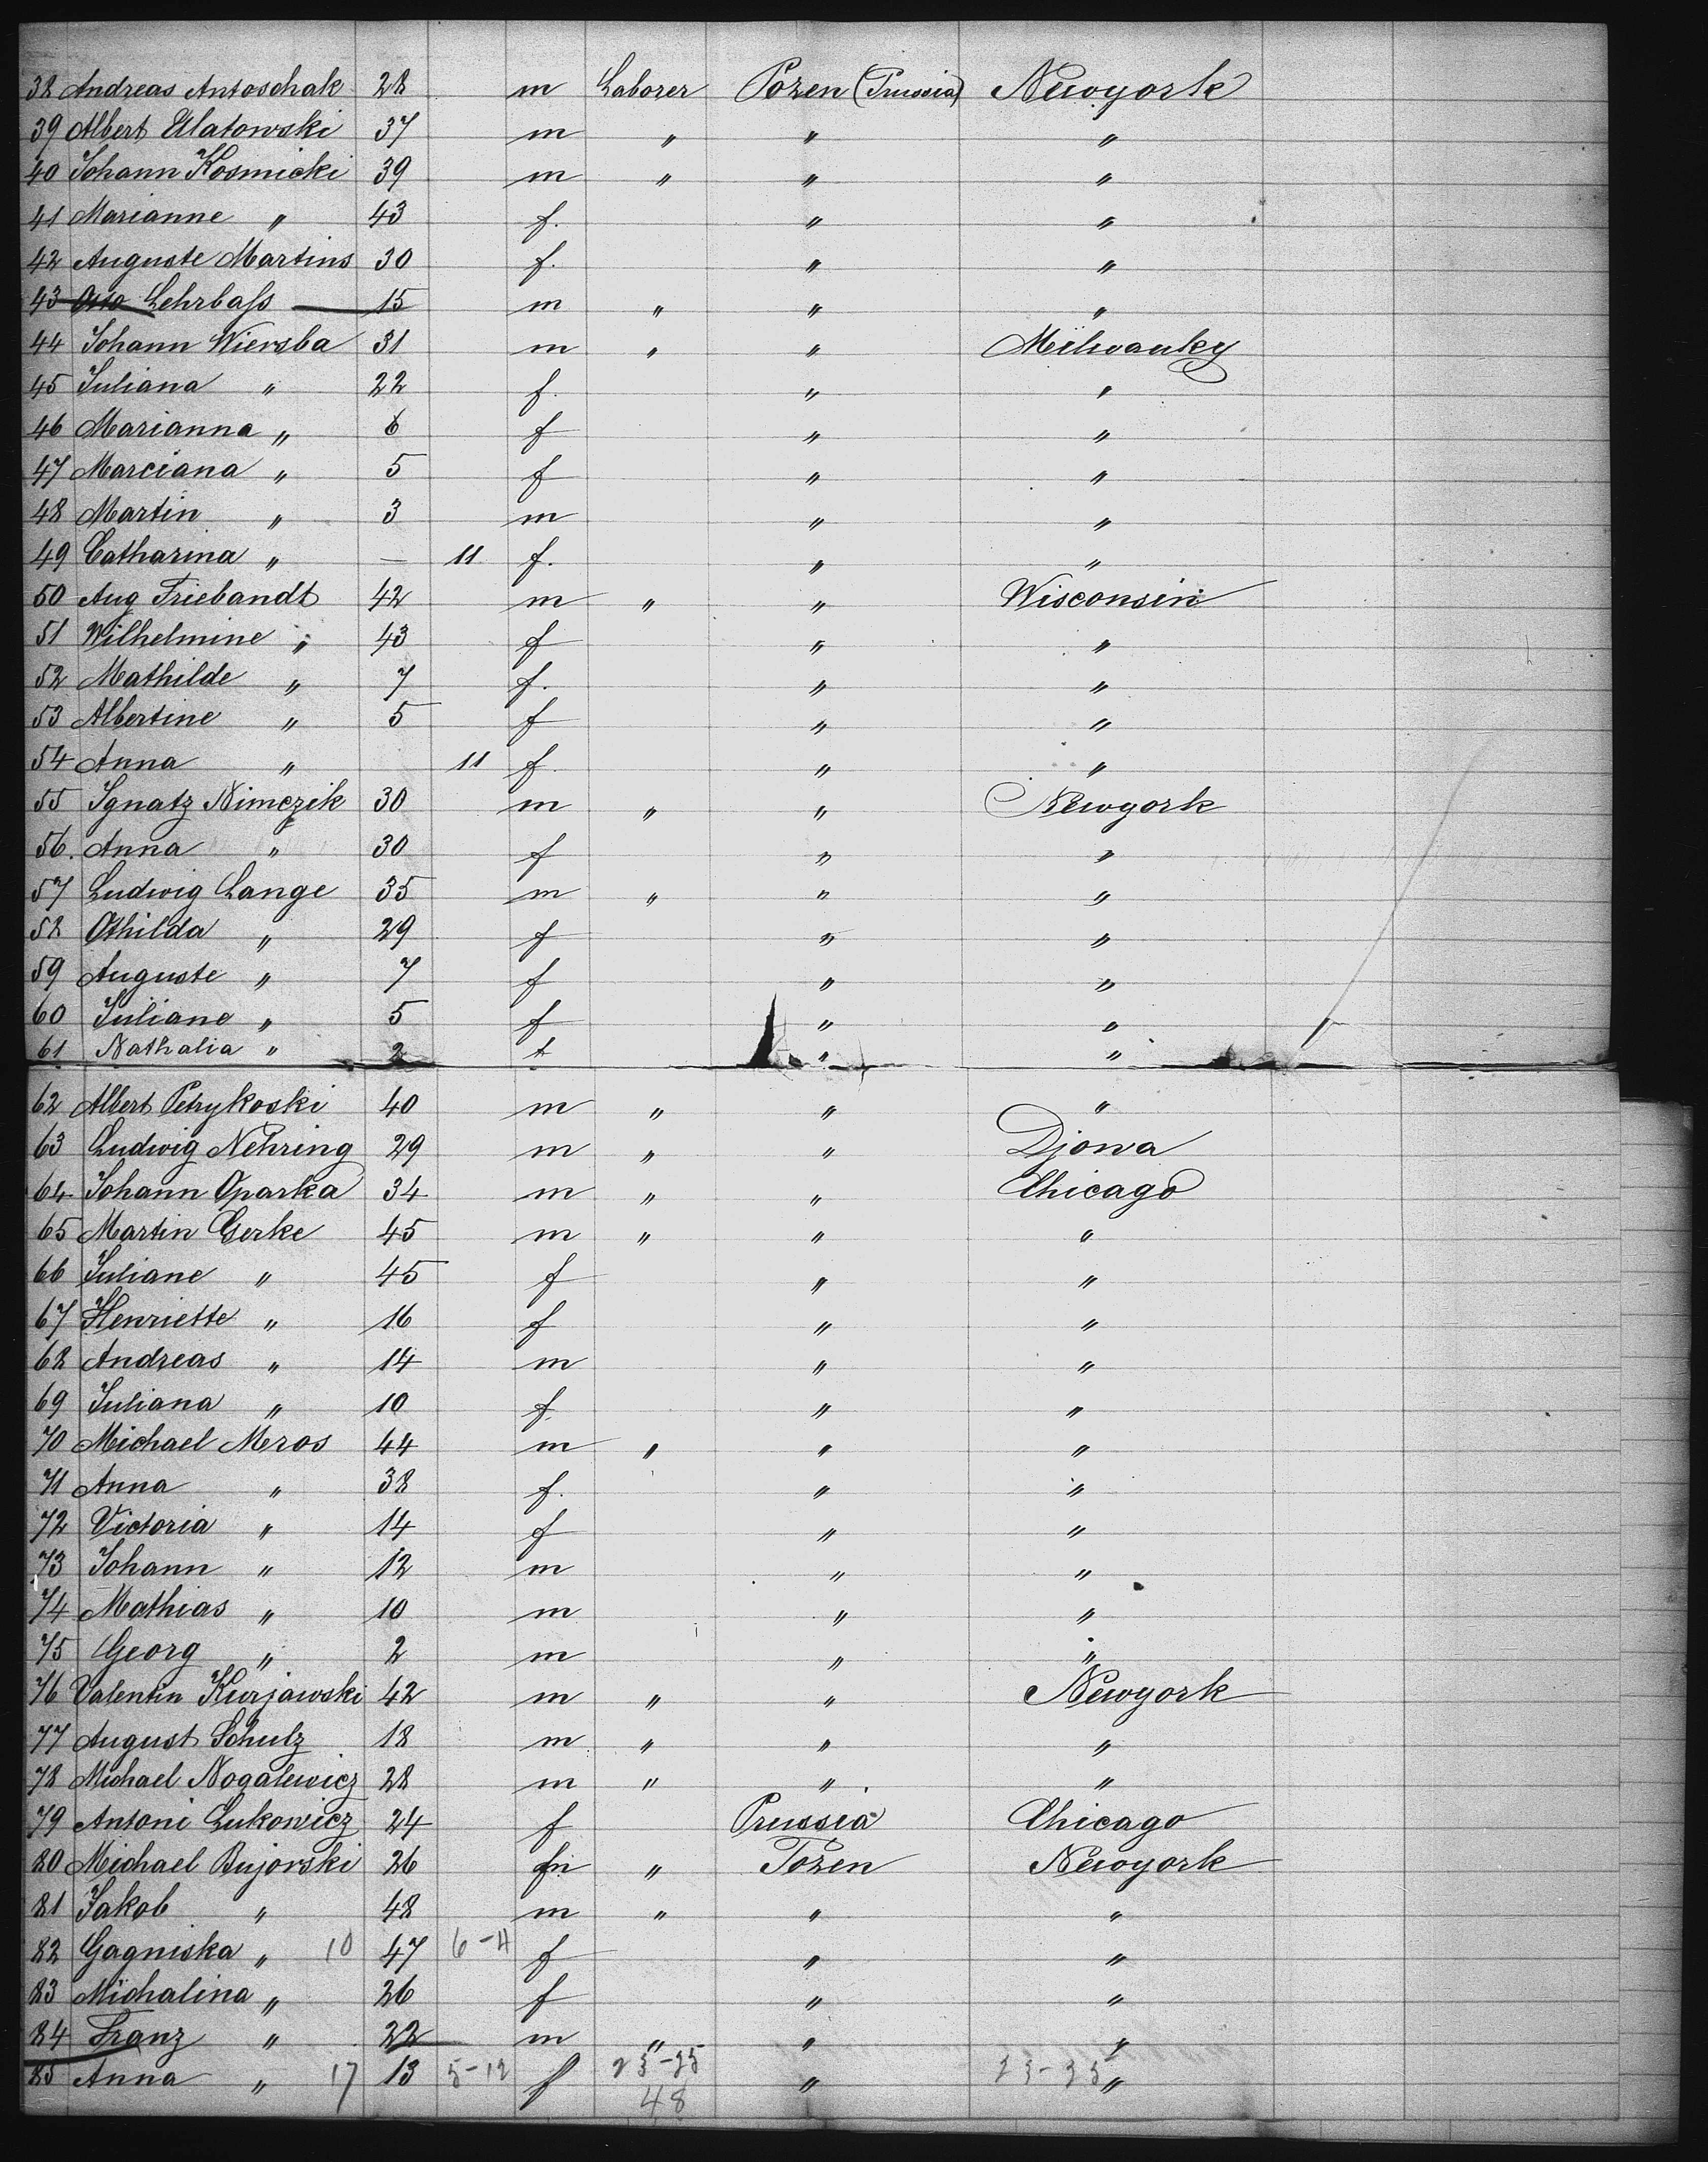 38 Andreas Antoschak 28 m Laborer Pozen (Prussia) Newyork
39 Albert Ulatowski 37 m " " "
40 Johann Kosmicki 39 m " " "
41 Marianne " 43 f. " "
42 Auguste Martins 30 f. " "
43 Otto Lehrbaſs 15 m " " "
44 Johann Wiersba 31 m " " Milwauky
45 Juliana " 22 f. " "
46 Marianna " 6 f " "
47 Marciana " 5 f " "
48 Martin " 3 m " "
49 Catharina " — 11 f. " "
50 Aug Friebandt 42 m " " Wisconsin
51 Wilhelmine " 43 f " "
52 Mathilde " 7 f. " "
53 Albertine " 5 f " "
54 Anna " 11 f " "
55 Ignatz Nimczik 30 m " " Newyork
56. Anna " 30 f " "
57 Ludwig Lange 35 m " " "
58 Othilda " 29 f " "
59 Auguste " 7 f " "
60 Juliane " 5 f " "
61 Nathalia " 2 f " "
62 Albert Petrykoski 40 m " " "
63 Ludwig Nehring 29 m " " Djowa
64 Johann Oparka 34 m " " Chicago
65 Martin Gerke 45 m " " "
66 Juliane " 45 f " "
67 Henriette " 16 f " "
68 Andreas " 14 m " "
69 Juliana " 10 f " "
70 Michael Meros 44 m " " "
71 Anna " 38 f. " "
72 Victoria " 14 f " "
73 Johann " 12 m " "
74 Mathias " 10 m " "
75 Georg " 2 m " "
76 Valentin Kurjawski 42 m " " Newyork
77 August Schulz 18 m " " "
78 Michael Nogalewicz 28 m " " "
79 Antoni Lukowicz 24 f Prussia Chicago
80 Michael Bujorski 26 m " Pozen Newyork
81 Jakob " 48 m " " "
82 Gagniska " 10 47 6-4 f " "
83 Michalina " 26 f " "
84 Franz " 22 m " " "
85 Anna " 17 13 5-12 f 23-25 " 23-35 "
48